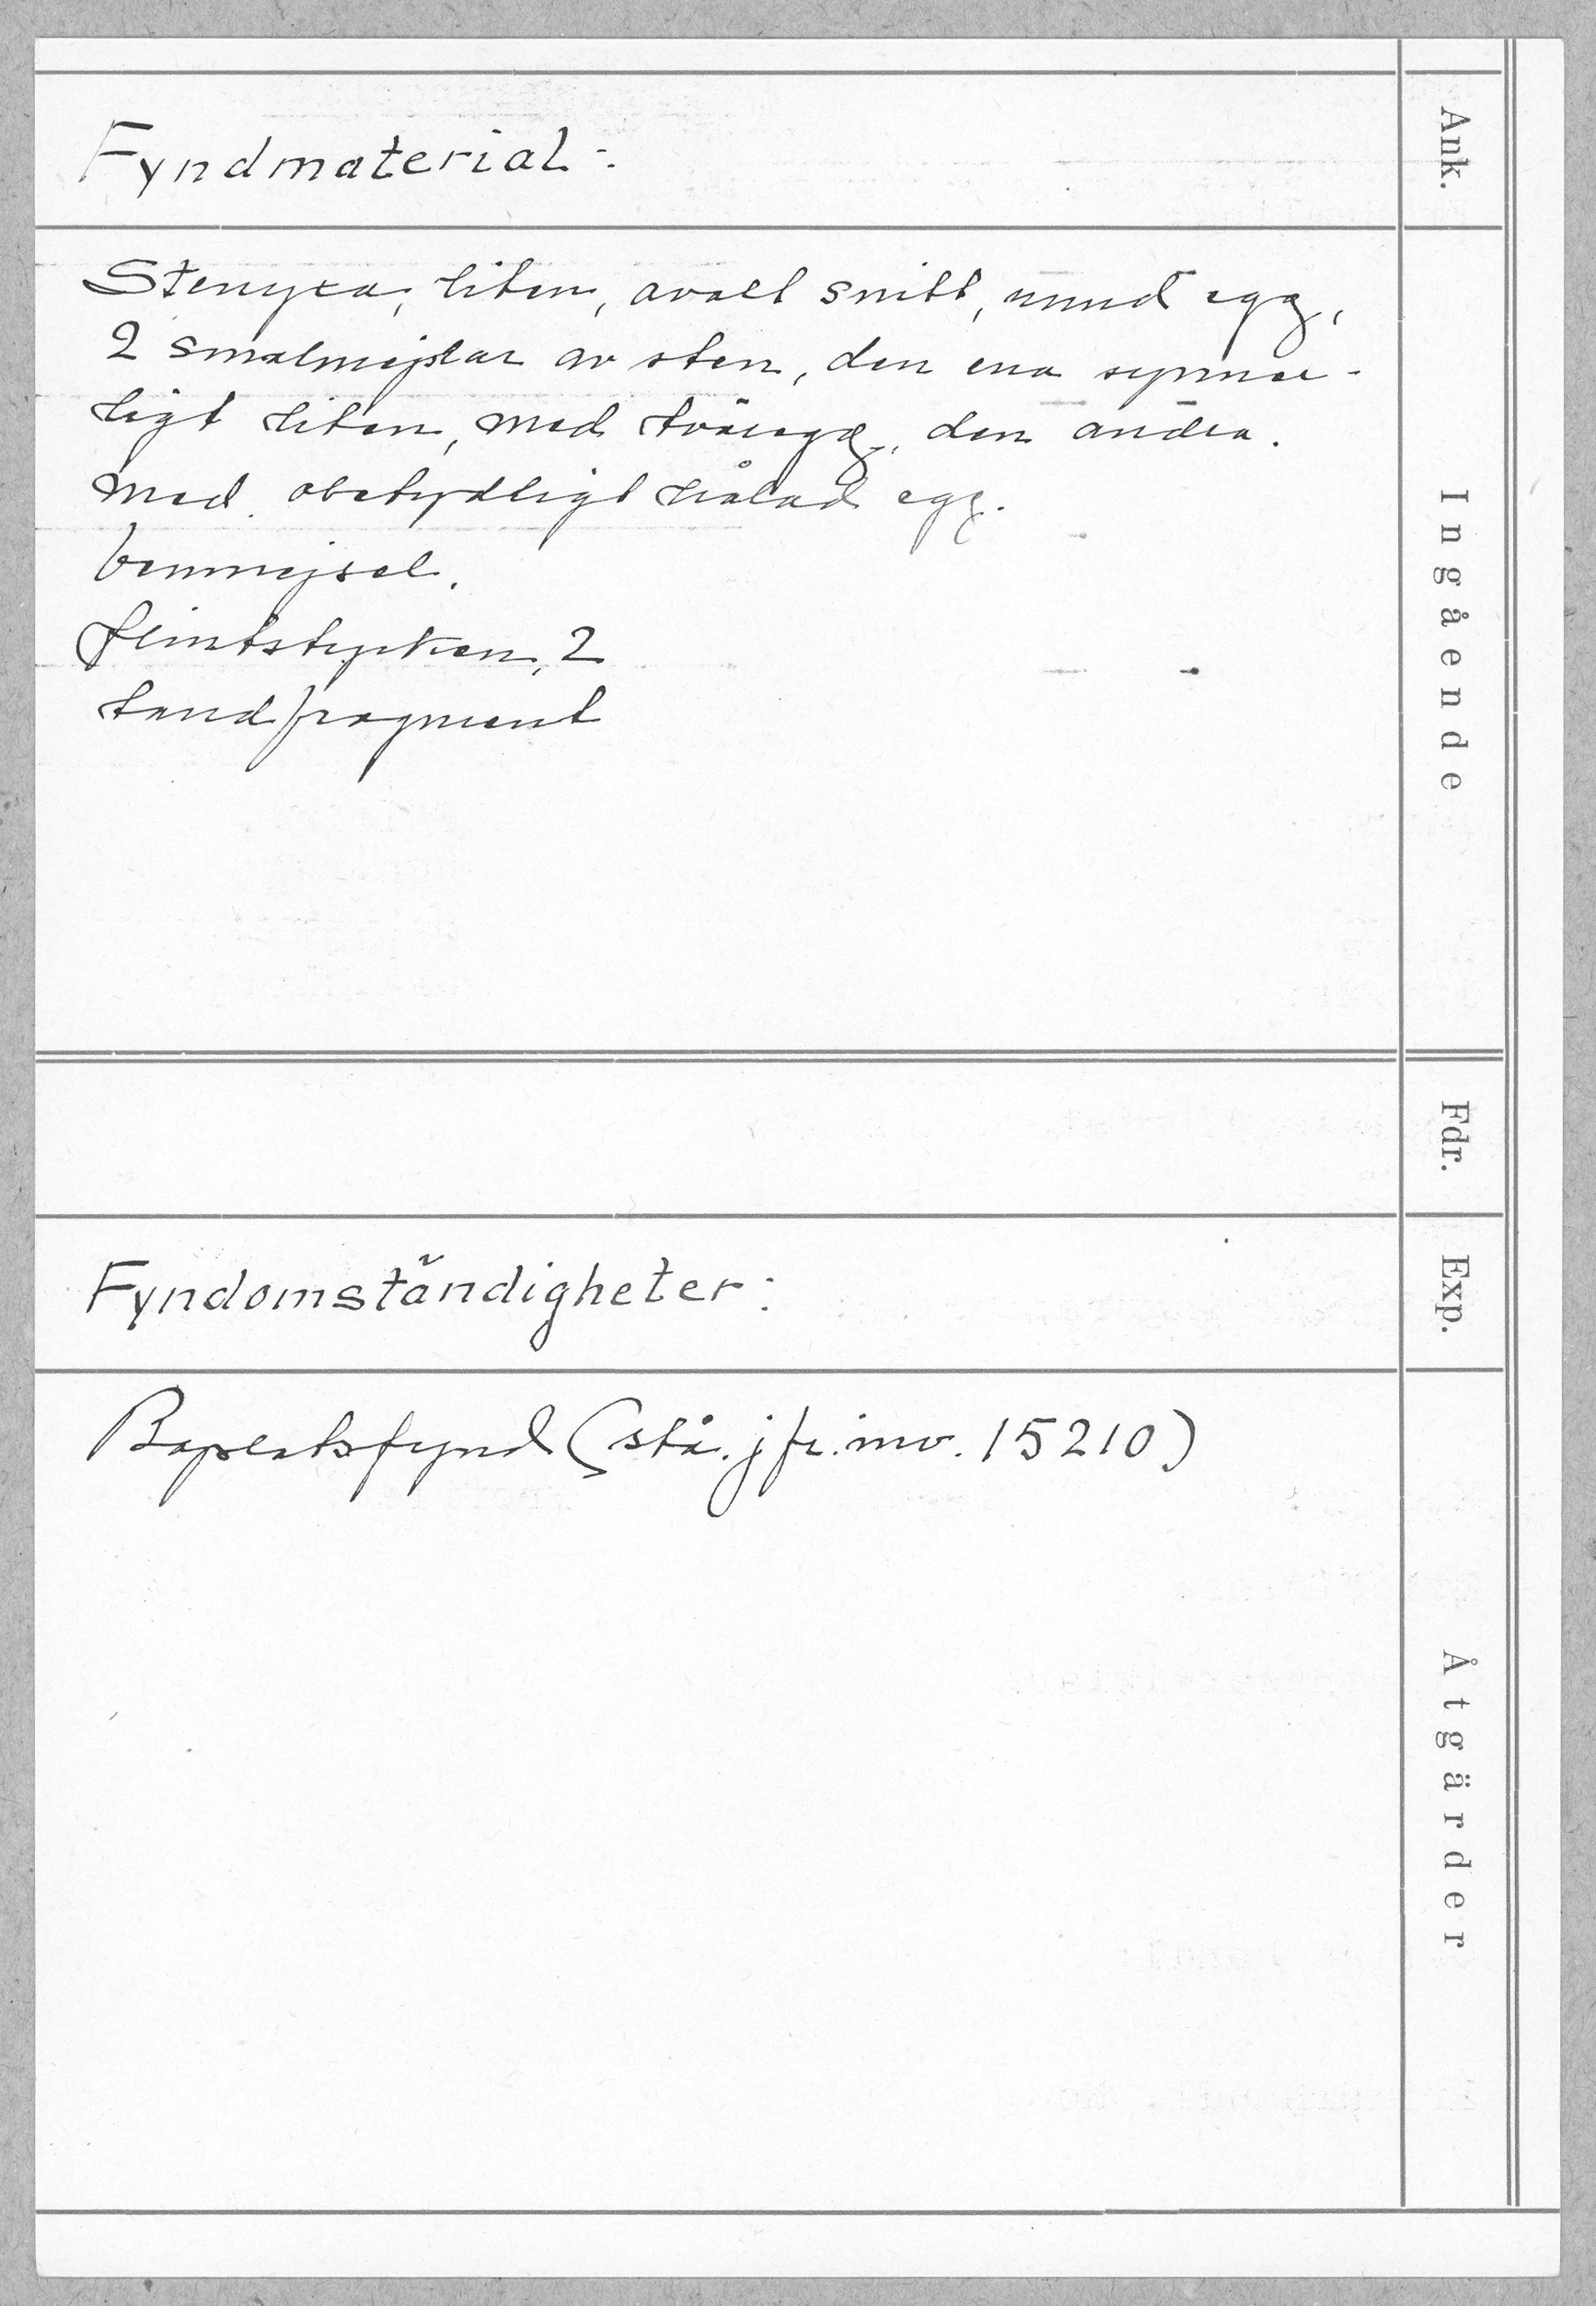 Fyndmaterial:
Stenyxa, liten, ovalt snitt, rund egg,
2 smalmejslar av sten, den ena synner-
ligt liten, med tväregg, den andra
med obetydligt hålad egg.
benmejsel.
flintstycken, 2
tandfragment
Fyndomständigheter:
Boplatsfynd (stå. jfr. inv. 15210)
Ank.
Ingående
Fdr.
Exp.
Åtgärder